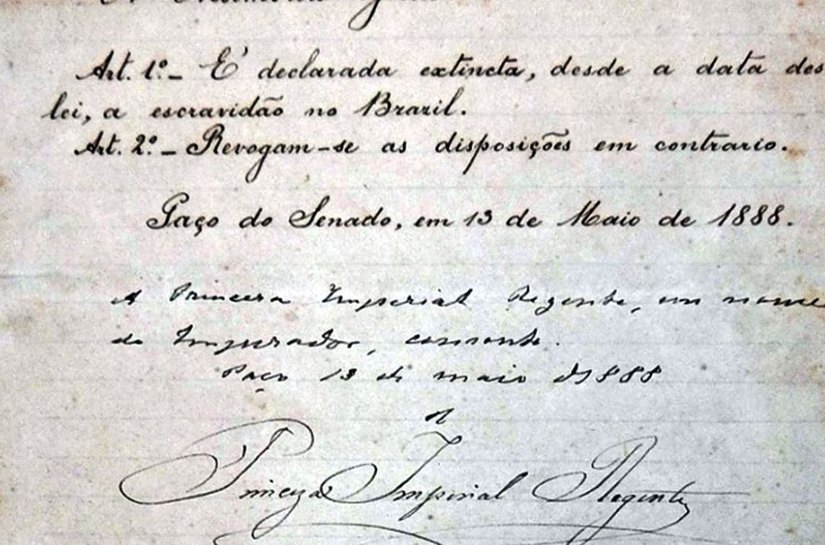 Art. 1º - É declarada extincta, desde a data des
lei, a escravidão no Brazil.
Art. 2º - Revogam-se as disposições em contrario.
Paço do Senado, em 13 de Maio de 1888.
A Princeza Imperial Regente, em nome
do Imperador, consente.
Paço 13 de maio de 1888
A
Princeza Imperial Regente